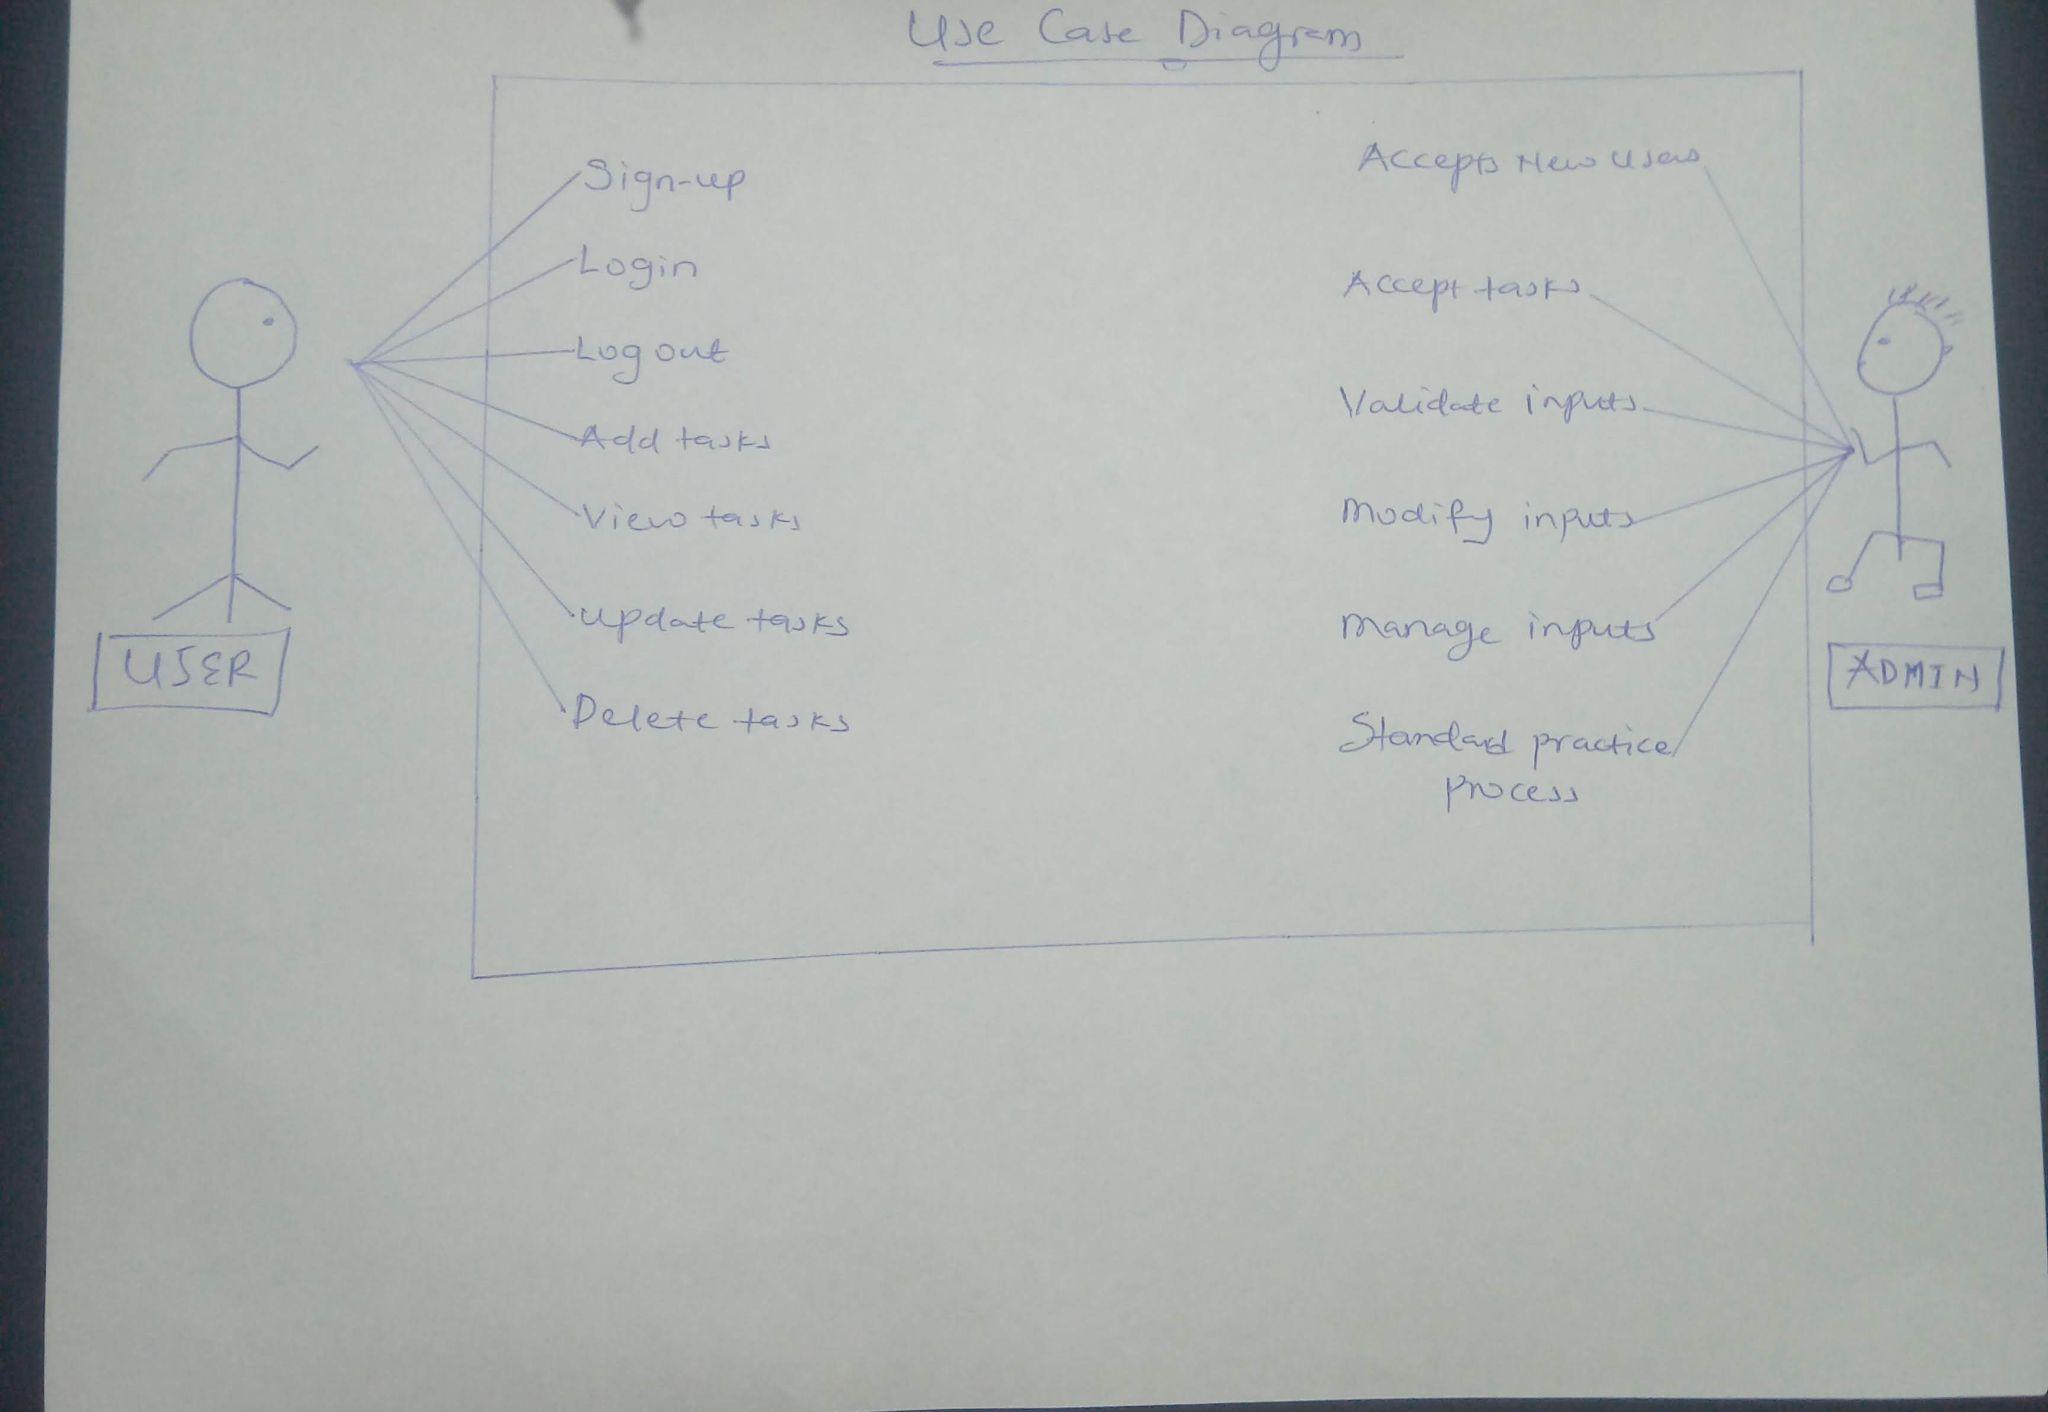 Use Case Diagram
Sign-up
Login
Log out
Add tasks
View tasks
Update tasks
Delete tasks
USER
Accepts New Users
Accept tasks
Validate inputs
Modify inputs
Manage inputs
Standard practice
process
ADMIN